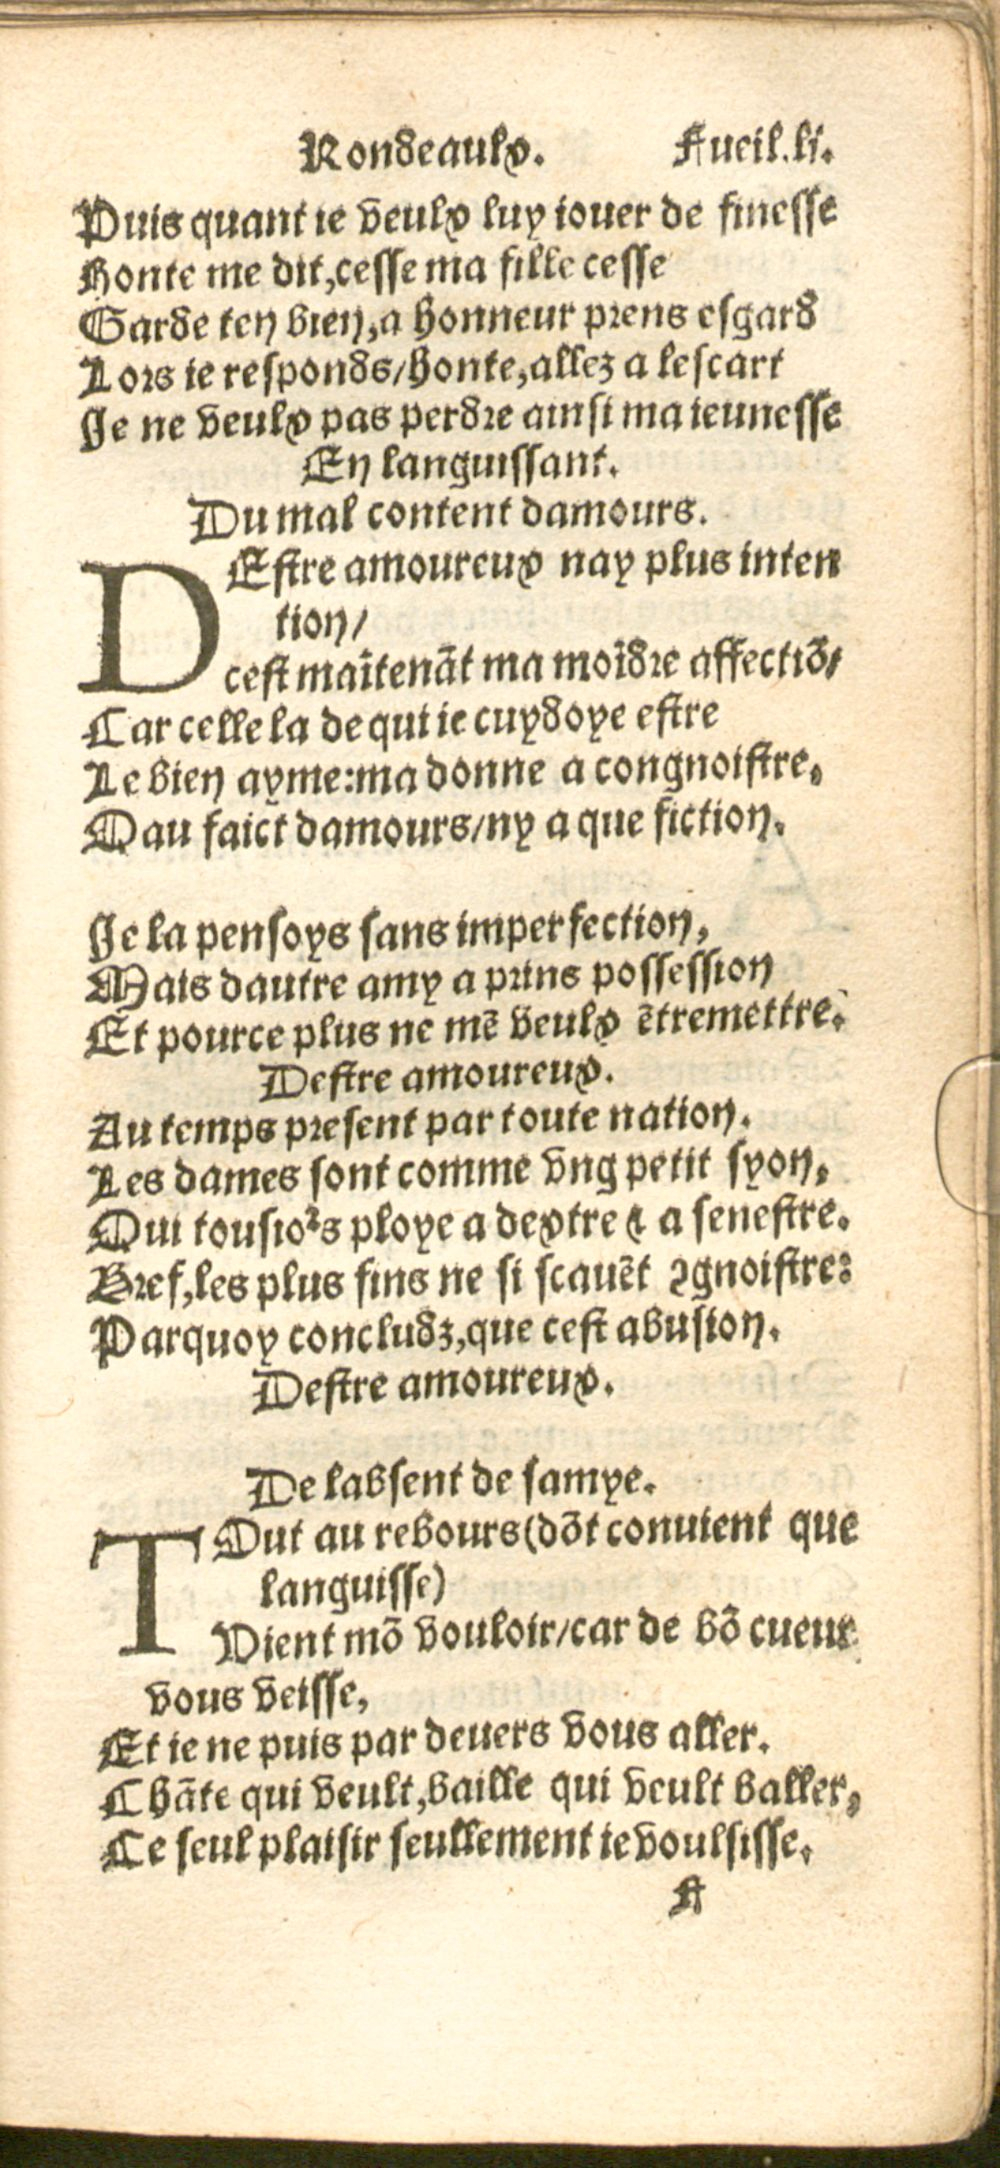 Rondeaulx. Fueil.li.
Puis quant ie veulx luy iouer de finesse
Honte me dit,cesse ma fille cesse
Garde ten bien,a honneur prens esgard
Lors ie responds/honte,allez a lescart
Je ne veulx pas perdre ainsi ma ieunesse
En languissant.
Du mal content damours.
DEstre amoureux nay plus inten
tion/
cest maītenāt ma moīdre affectiō/
Car celle la de qui ie cuydoye estre
Le bien ayme:ma donne a congnoistre,
Qau faict damours/ny a que fiction.
Je la pensoys sans imperfection,
Mais dautre amy a prins possession
Et pource plus ne mē veulx ētremettre.
Destre amoureux.
Au temps present par toute nation.
Les dames sont comme vng petit syon,
Qui tousioꝛs ploye a dextre ⁊ a senestre.
Bref,les plus fins ne si scauēt ꝯgnoistre:
Parquoy concludz,que cest abusion.
Destre amoureux.
De labsent de samye.
TOut au rebours(dōt conuient que
languisse)
Vient mō vouloir/car de bō cueur
vous veisse,
Et ie ne puis par deuers vous aller.
Chāte qui veult,baille qui veult baller,
Ce seul plaisir seullement ie voulsisse.
A